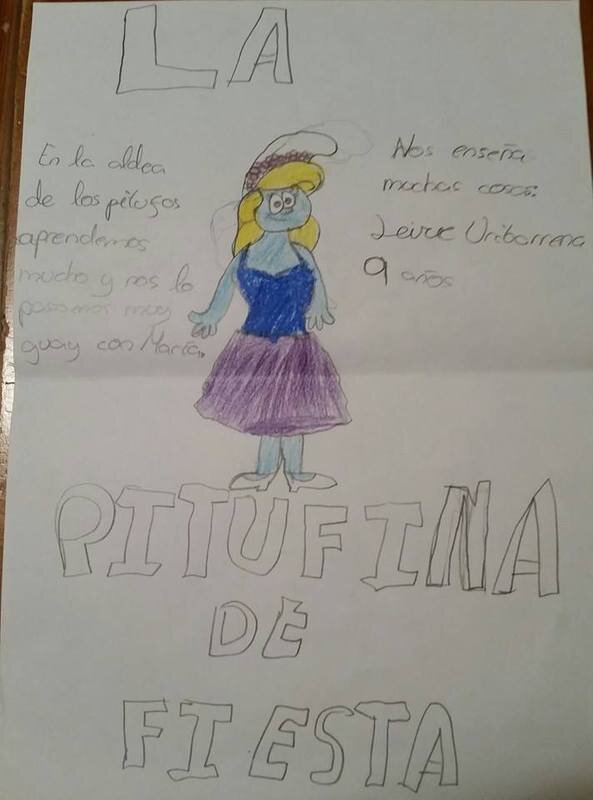 LA
En la aldea
de los pitufos
aprendemos
mucho y nos lo
pasamos muy
guay con María.
Nos enseña
muchas cosas.
Leire Uribarrena
9 años
PITUFINA
DE
FIESTA